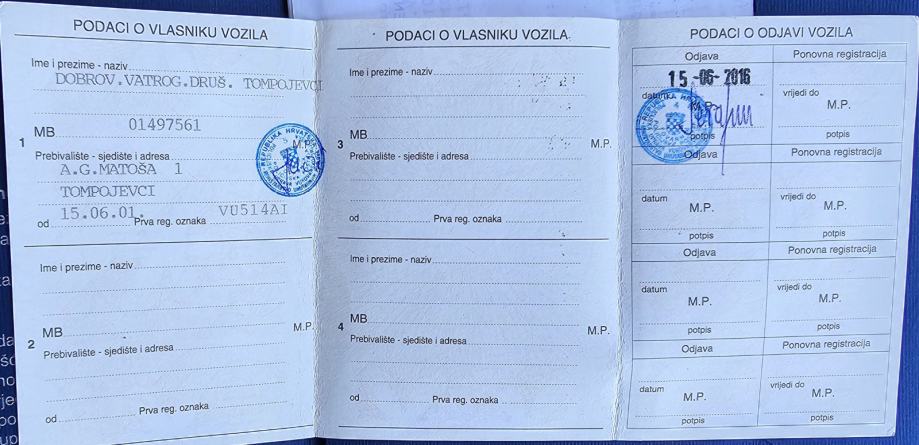 PODACI O VLASNIKU VOZILA
Ime i prezime - naziv
DOBROV.VATROG.DRUŠ. TOMPOJEVCI
1
MB 01497561
M.P.
Prebivalište - sjedište i adresa
A.G.MATOŠA 1
TOMPOJEVCI
od 15.06.01. Prva reg. oznaka VU514AI
Ime i prezime - naziv
2
MB M.P.
Prebivalište - sjedište i adresa
od Prva reg. oznaka
PODACI O VLASNIKU VOZILA
Ime i prezime - naziv
3
MB M.P.
Prebivalište - sjedište i adresa
od Prva reg. oznaka
Ime i prezime - naziv
4
MB M.P.
Prebivalište - sjedište i adresa
od Prva reg. oznaka
PODACI O ODJAVI VOZILA
Odjava Ponovna registracija
15-06-2016
datum vrijedi do
M.P. M.P.
potpis
REPUBLIKA HRVATSKA
Odjava Ponovna registracija
datum vrijedi do
M.P. M.P.
potpis potpis
Odjava Ponovna registracija
datum vrijedi do
M.P. M.P.
potpis potpis
Odjava Ponovna registracija
datum vrijedi do
M.P. M.P.
potpis potpis